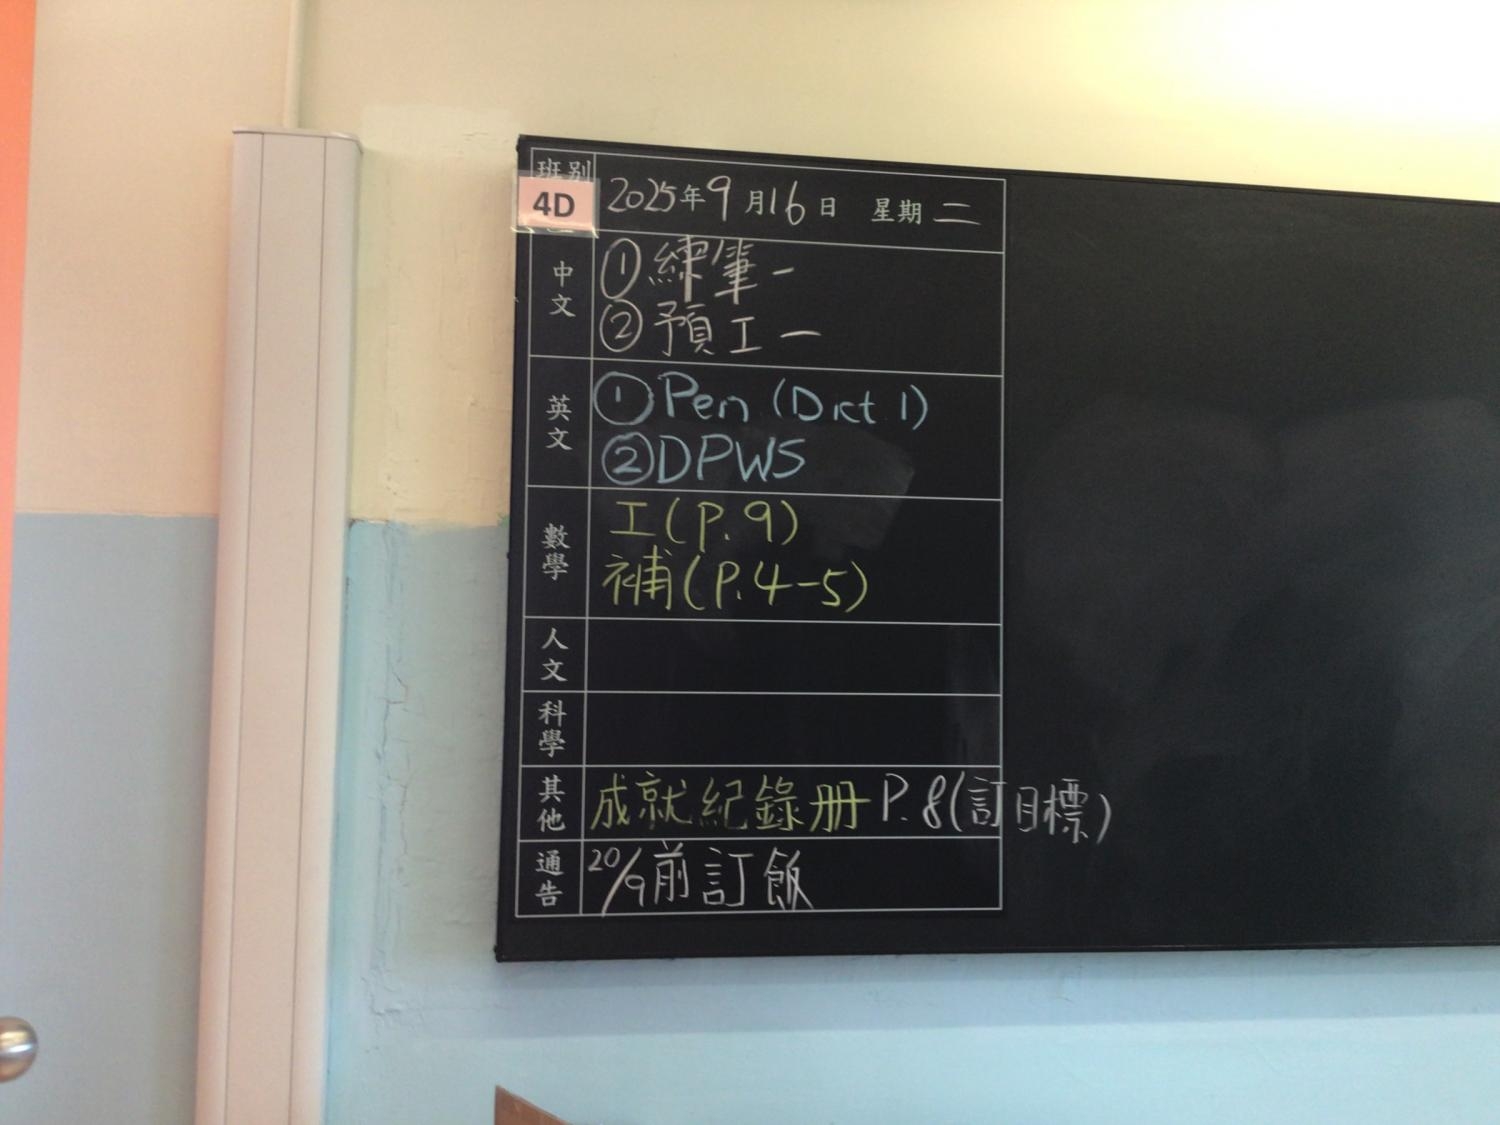 班别
4D
2025年9月16日 星期二
中文
①練筆一
②預工一
英文
①Pen (Dict 1)
②DPWS
數學
工(P.9)
補(P.4-5)
人文
科學
其他
成就紀錄册P.8(訂目標)
通告
20/9前訂飯